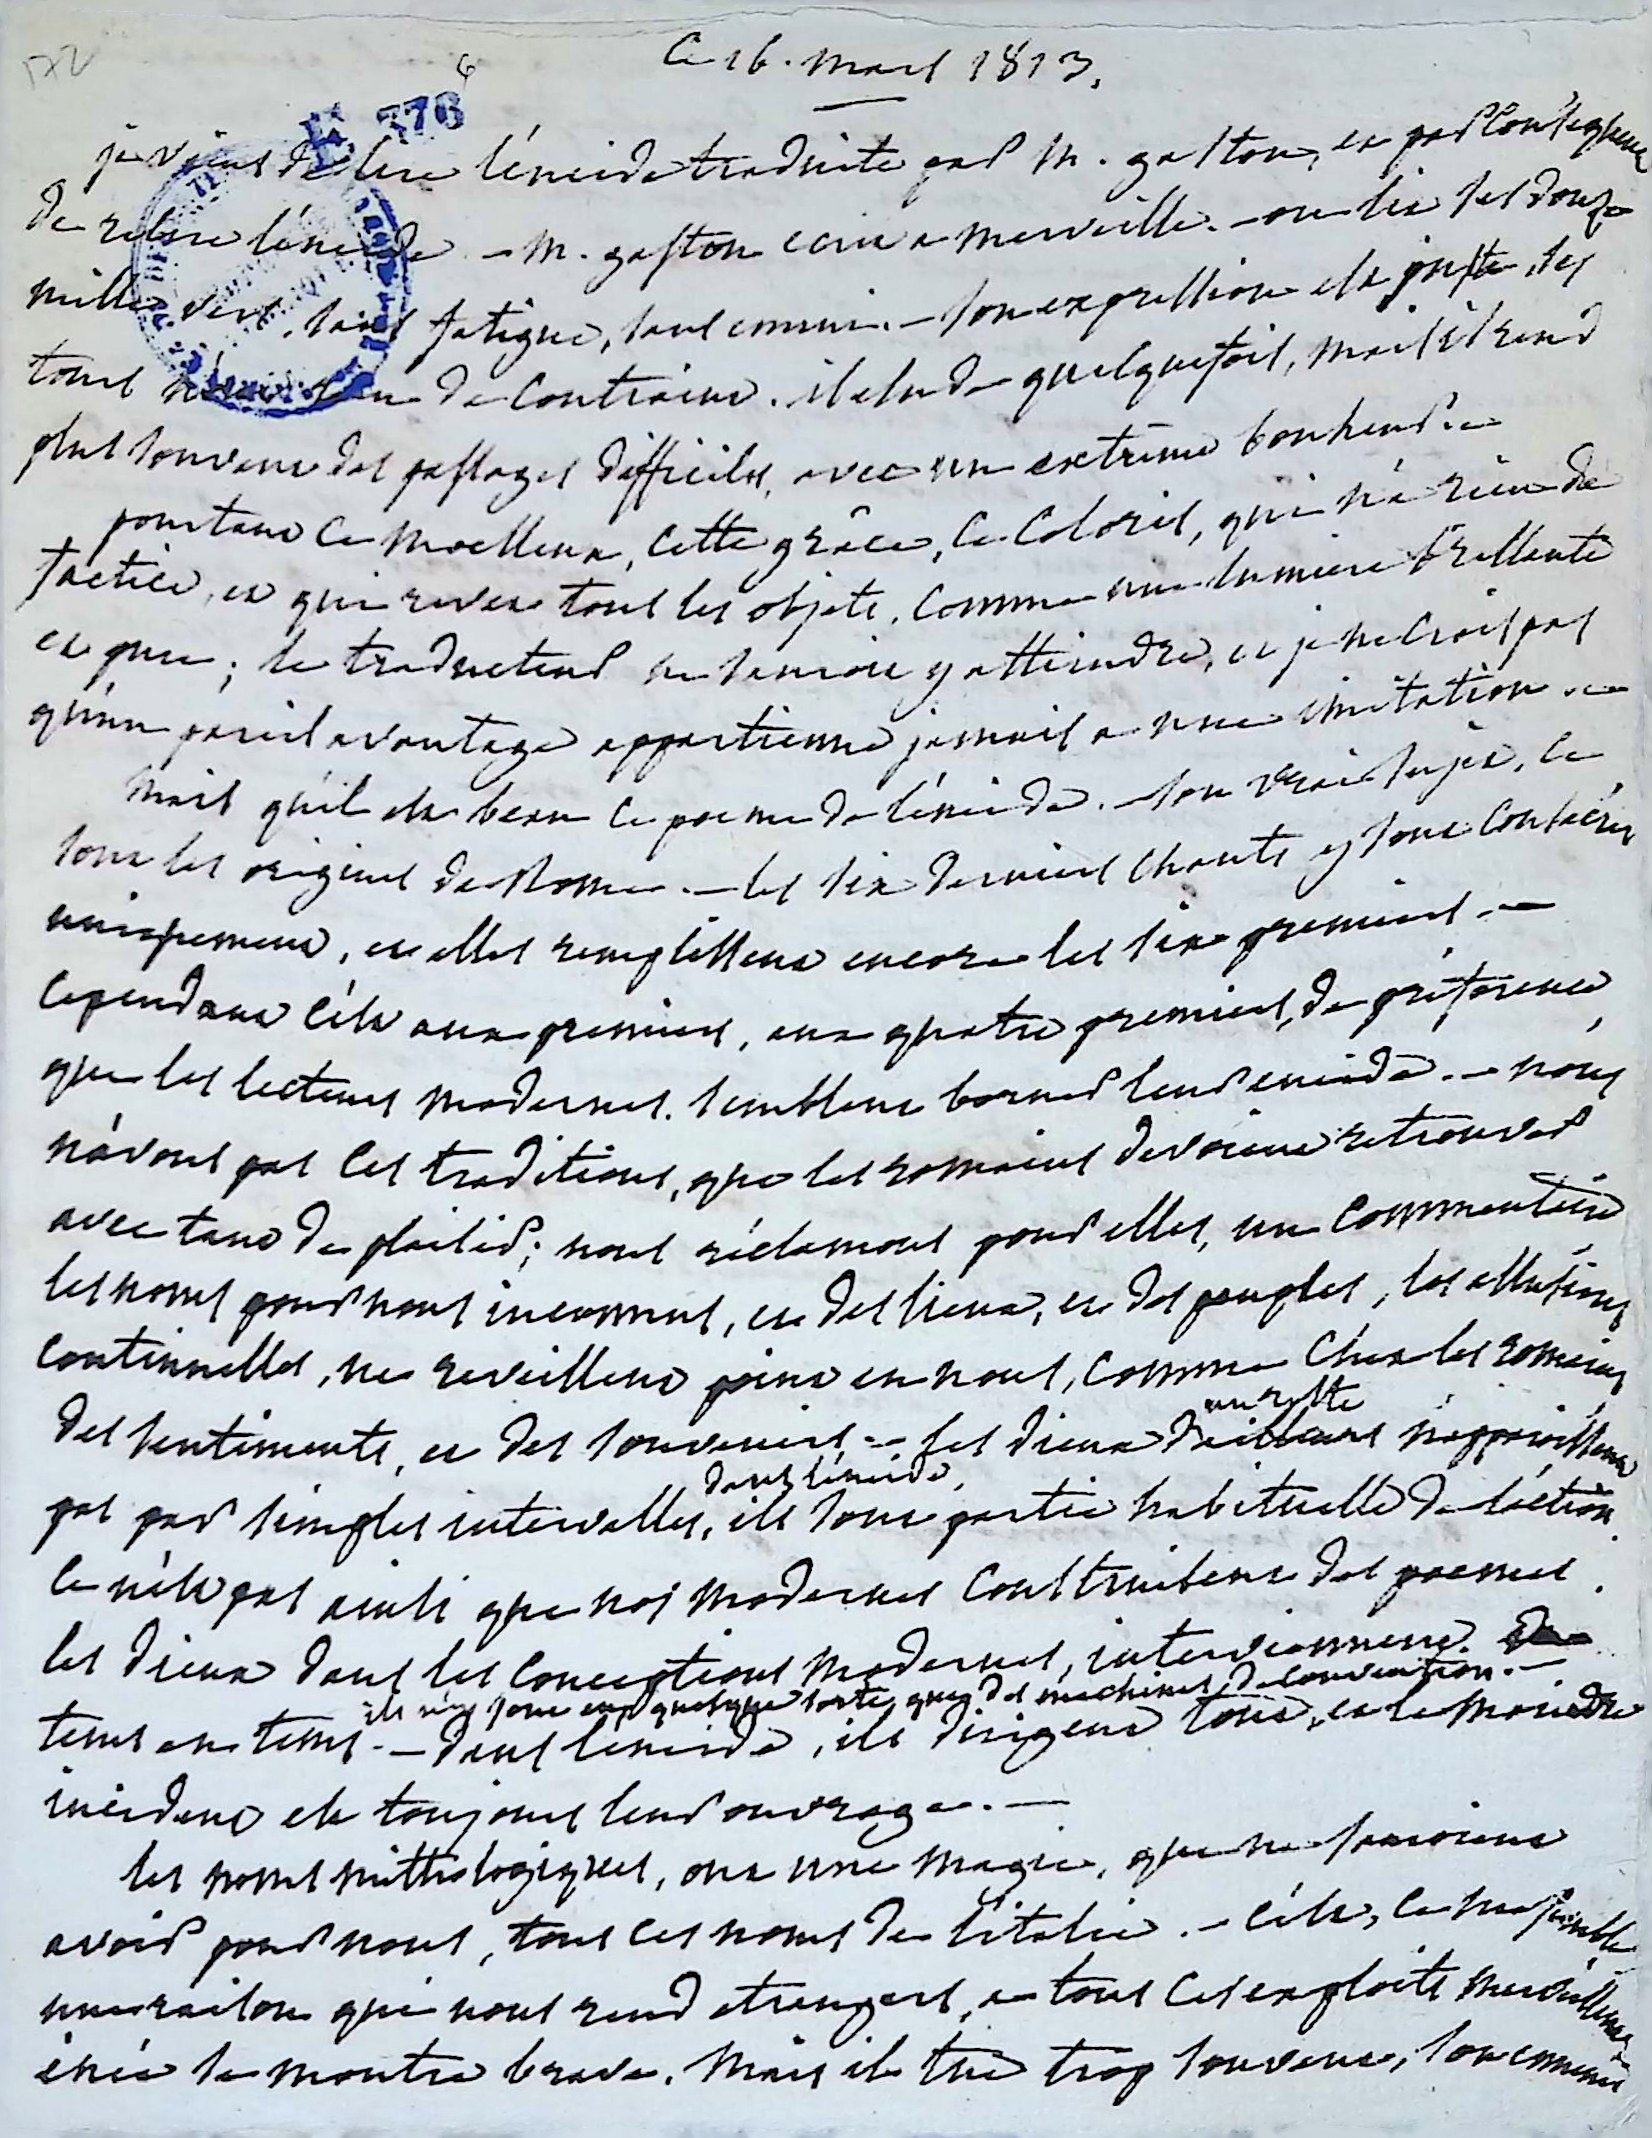 172
6
Ce 16. mars 1813.
E 376
je viens de lire l'éneide traduite par M. gaston, et par conséquent
de relire l'éneide. – M. gaston ecrit a merveille. – on lit ses douze
mille vers, sans fatigue, sans ennui. – son expression est juste, ses
tours n'ont rien de contraint. il elude quelquefois, mais il rend
plus souvent des passages difficiles, avec un extrême bonheur. –
pourtant ce moelleux, cette grâce, ce coloris, qui n'a rien de
factice, et qui revet tous les objets, comme une lumiere brillante
et pure ; le traducteur ne sauroit y atteindre, et je ne crois pas
qu'un pareil avantage appartienne jamais a une imitation. –
Mais qu'il est beau ce poeme de l'éneide. – son vrai sujet, ce
sont les origines de Rome. – les six derniers chants y sont consacrés
uniquement, et elles remplissent encore les six premiers. –
cependant c'est aux premiers, aux quatre premiers, de préférence,
que les lecteurs modernes semblent borner leur eneide. – nous
n'avons pas ces traditions, que les romains devoient retrouver
avec tant de plaisir ; nous réclamons pour elles, un commentaire,
les noms pour nous inconnus, et des lieux, et des peuples, les allusions
continuelles, ne reveillent point en nous, comme chez les romains
des sentiments, et des souvenirs. – les dieux d'ailleurs n'apparoissent
au reste
pas par simples intervalles, ils sont partie habituelle de l'action.
dans l'éneide,
ce n'est pas ainsi que nos modernes construisent des poemes.
les dieux dans les conceptions modernes, interviennent de
tems en tems. – dans l'eneide, ils dirigent tout, et le moindre
ils n'y sont en quelque sorte que des machines de convention. –
incident est toujours leur ouvrage. –
les noms mithologiques, ont une magie, que ne sauroient
avoir pour nous, tous ces noms de l'italie. – c'est, ce me semble
une raison qui nous rend etrangers, a tous ces exploits merveilleux
énée se montre brave. Mais il tue trop souvent, son ennemi